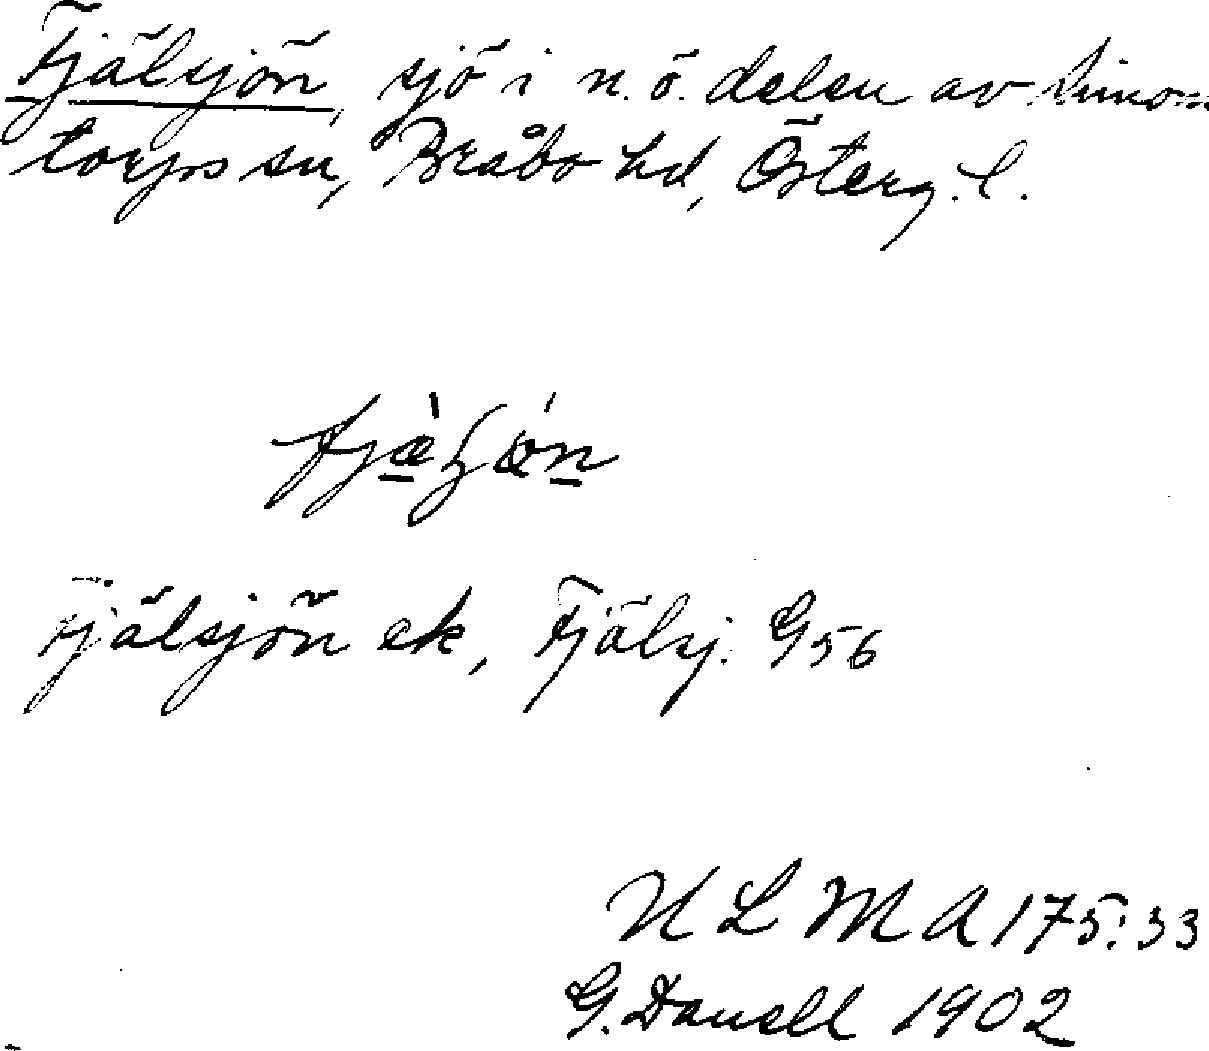 Fjälsjön, sjö i n.ö. delen av Simons
torps sn, Bråbo hd, Österg. l.
Fjälsjön ek, Fjälsj. G56
ULMA 175:33
G. Danell 1902